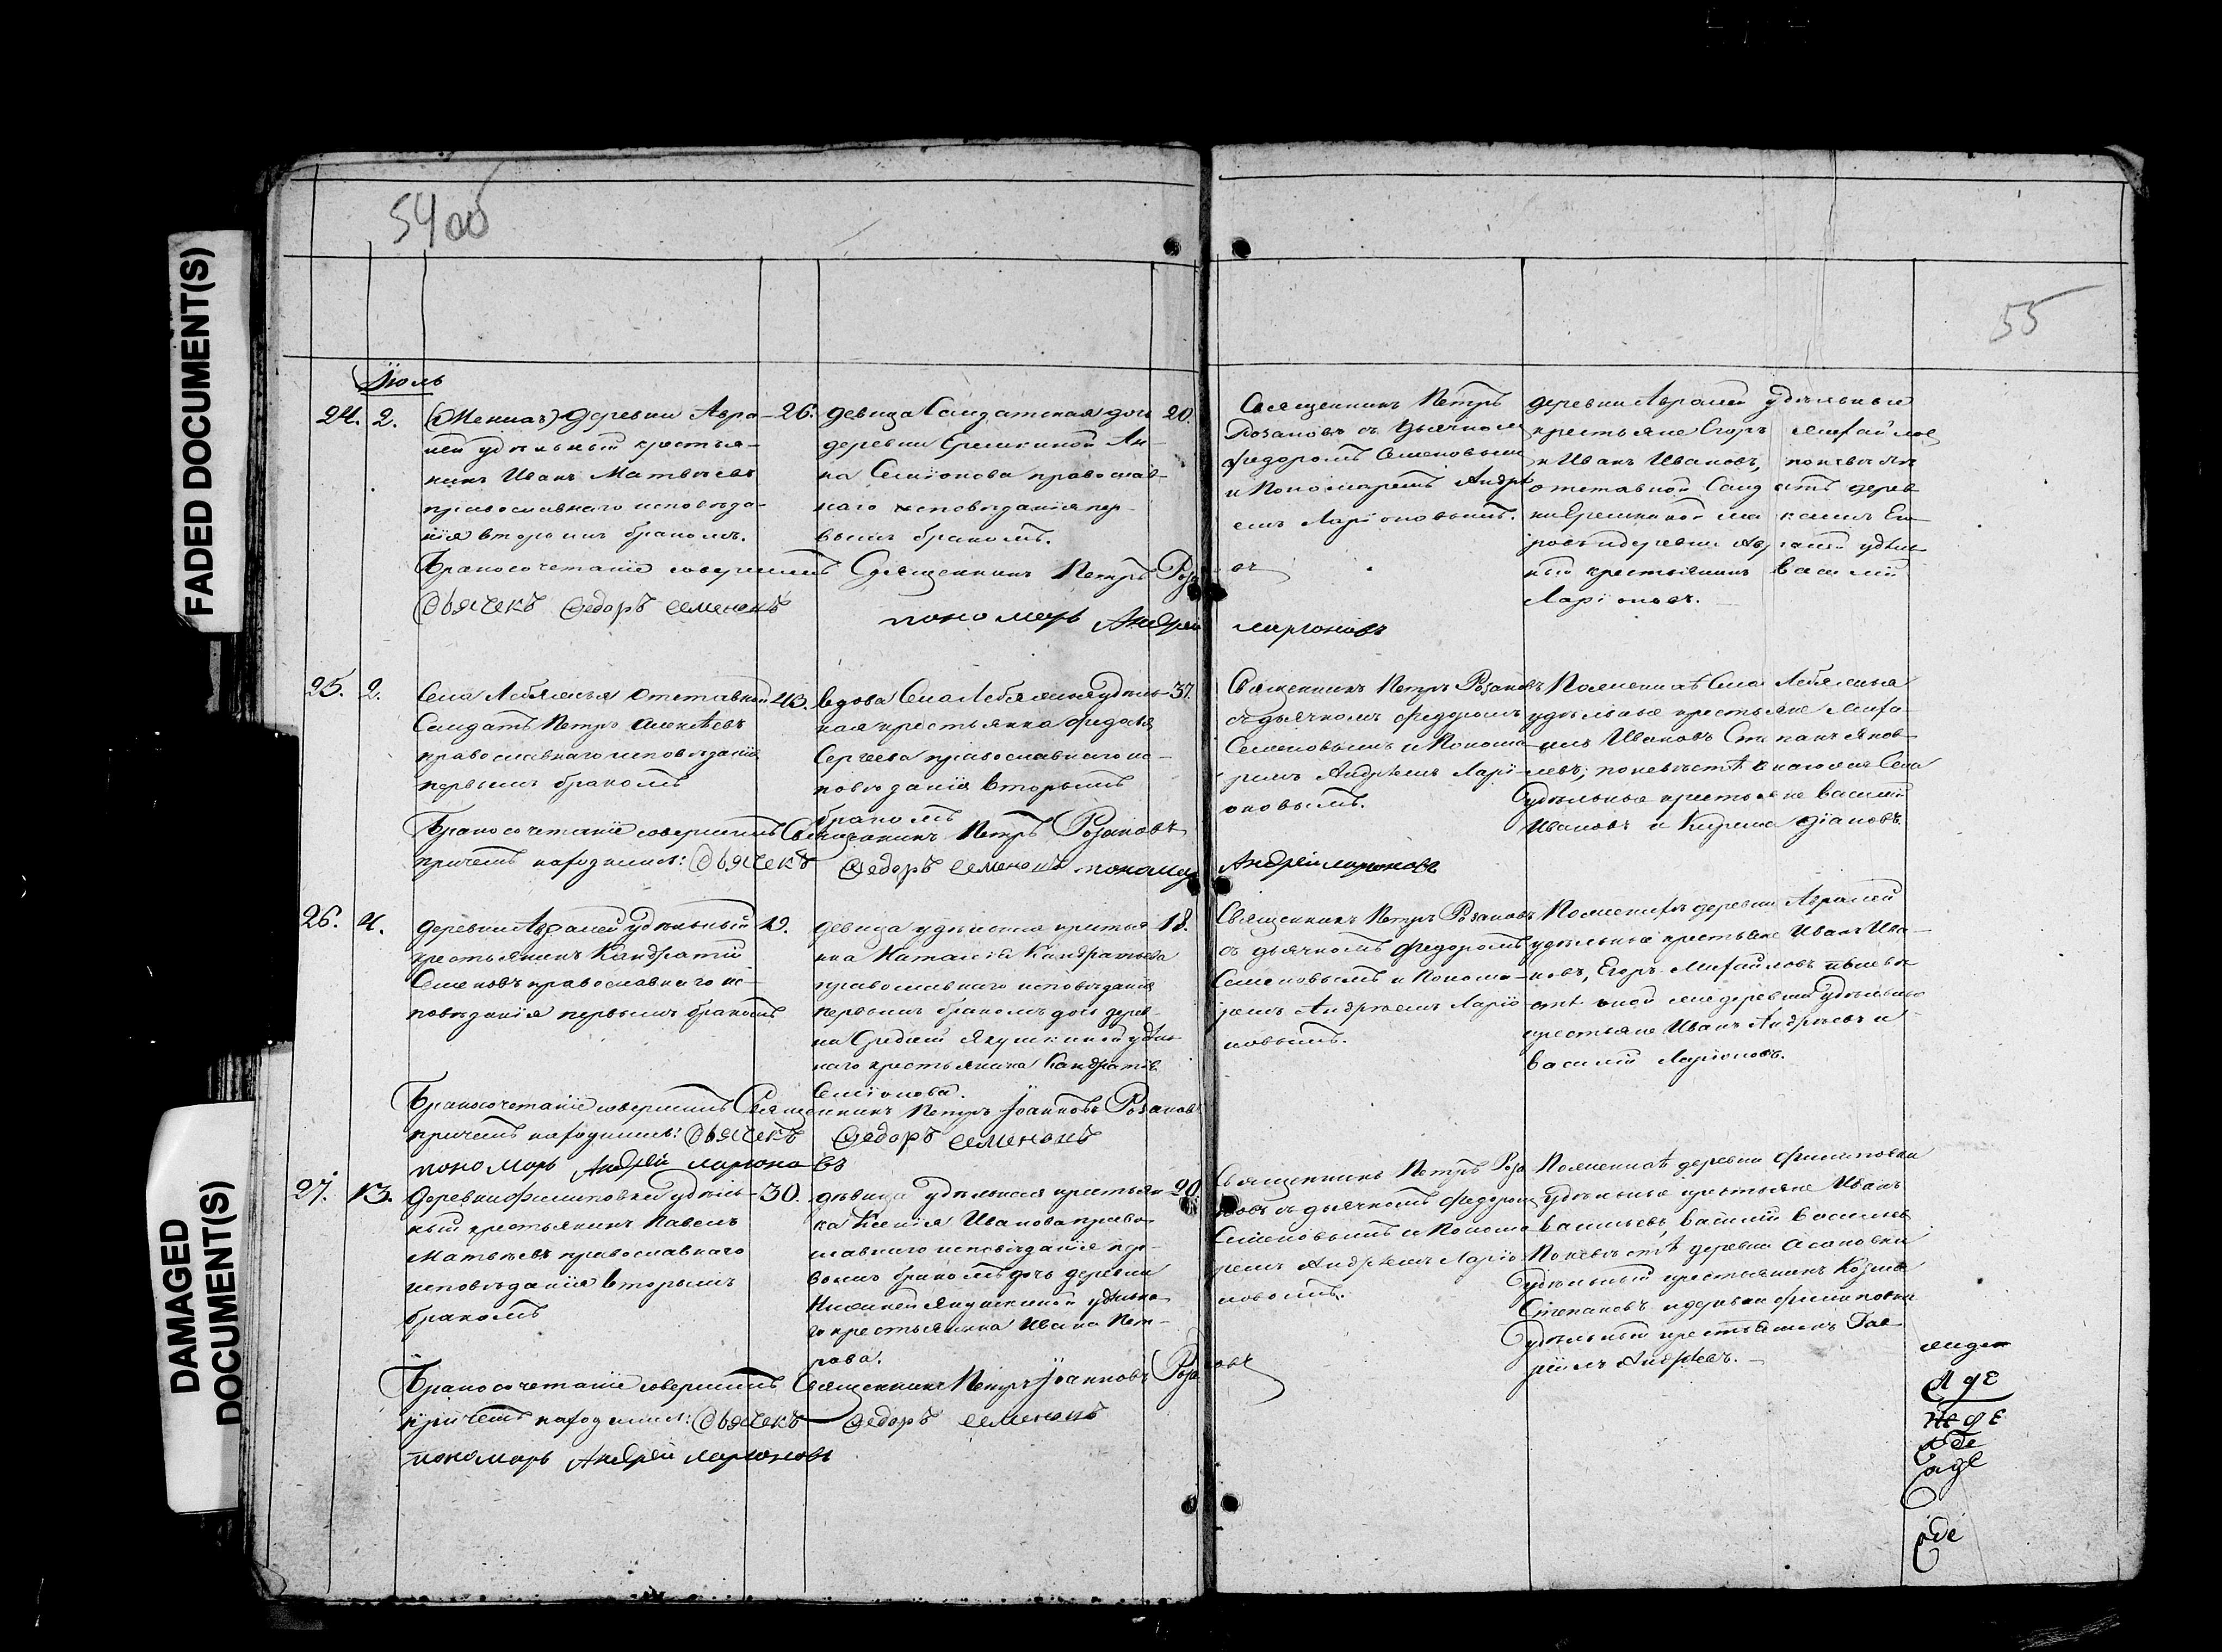 FADED DOCUMENT(S)
DAMAGED
DOCUMENT(S)
54 об
55
Іюль
24. 2.
(Женихъ) Деревни Авра-
лей удѣльный крестья-
нинъ Иванъ Матвѣевъ
православнаго исповѣда-
нія вторымъ бракомъ.
26.
девица Солдатская дочь
деревни Ерешкиной Ан-
на Семіонова православ-
наго исповѣданія пер-
вымъ бракомъ.
20.
Священникъ Петръ
Розановъ съ дьячкомъ
Федоромъ Семеновымъ
и Пономаремъ Андре
емъ Ларіоновымъ.
деревни Авралей удѣльные
крестьяне Егоръ Михайлов
и Иванъ Ивановъ, по невѣстѣ
отставной Солдатъ дерев
ни Ерешкиной
и деревни Авралей удѣль
ный крестьянинъ Василій
Ларіоновъ.
Бракосочетаніе совершилъ Священникъ Петръ Розановъ
Дьячекъ Федоръ Семеновъ
пономарь Андрей Ларионовъ
25. 2.
Села Лебяжья отставной
Солдатъ Петръ Алексѣевъ
православнаго исповѣданія
первымъ бракомъ
43.
вдова Села Лебяжья удѣль-
ная крестьянка Федосья
Сергеева православнаго ис-
повѣданія вторымъ
бракомъ
37.
Священникъ Петръ Розановъ
съ дьячкомъ Федоромъ
Семеновымъ и Понома-
ремъ Андреемъ Ларі-
оновымъ.
По женихѣ Села Лебяжья
удѣльные крестьяне Миха-
илъ Ивановъ Степанъ Яков-
левъ; по невѣстѣ Села
удѣльные крестьяне Василій
Ивановъ и
Бракосочетаніе совершилъ Священникъ Петръ Розановъ
причетъ находился: Дьячекъ Федоръ Семеновъ пономарь Андрей Ларионовъ
26. 4.
деревни Авралей удѣльный
крестьянинъ Кандратій
Семеновъ православнаго ис-
повѣданія первымъ бракомъ
19.
девица удѣльная крестья-
нка Наталія Кандратьева
православнаго исповѣданія
первымъ бракомъ дочь дерев-
ни Средней Якушкиной удѣль
наго крестьянина Кандратія
Семіонова.
18.
Священникъ Петръ Розановъ
съ дьячкомъ Федоромъ
Семеновымъ и Понома-
ремъ Андреемъ Ларіо-
новымъ.
По женихѣ деревни Авралей
удѣльные крестьяне Иванъ Ива-
новъ, Егоръ Михайловъ по невѣ
стѣ деревни удѣльные
крестьяне Иванъ Андреевъ и
Василій Ларіоновъ.
Бракосочетаніе совершилъ Священникъ Петръ Іоанновъ Розановъ
причетъ находился: Дьячекъ Федоръ Семеновъ
пономарь Андрей Ларионовъ
27. 13.
Деревни Филиповки удѣль-
ный крестьянинъ Павелъ
Матвѣевъ православнаго
исповѣданія вторымъ
бракомъ
30.
дѣвица удѣльная крестьян
ка Ксенія Иванова право-
славнаго исповѣданія пер-
вымъ бракомъ дочь деревни
Нижней Якушкиной удѣльна
го крестьянина Ивана Пет-
рова.
20.
Священникъ Петръ Роза
новъ съ дьячкомъ Федоромъ
Семеновымъ и Понома
ремъ Андреемъ Ларіо-
новымъ.
По женихѣ деревни Филиповки
удѣльные крестьяне Иванъ
Васильевъ, Василій Васильев
По невѣстѣ деревни Асановки
удѣльный крестьянинъ Козьма
Степановъ и деревни Филиповки
удѣльный крестьянинъ Гав-
ріилъ Андреевъ.
Бракосочетаніе совершилъ Священникъ Петръ Іоанновъ Розановъ
причетъ находился: Дьячекъ Федоръ Семеновъ
пономарь Андрей Ларионовъ